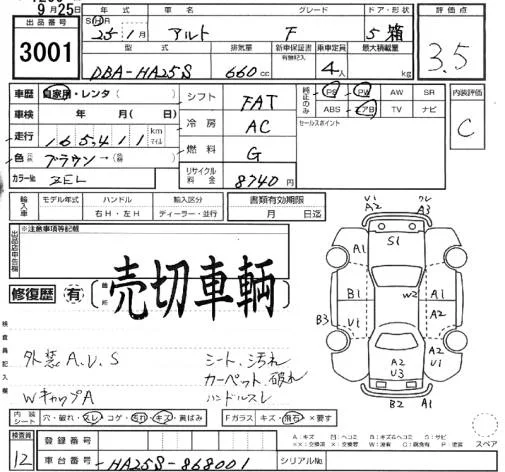 9月25日
出品番号 年式 グレード ドア・形状 評価点
3001 S・H 25年1月 アルト F 5 箱 3.5
型式 排気量 新車保証書 有無記入 乗車定員 最大積載量
DBA-HA25S 660cc 4人 kg
車歴 自家用・レンタ( ) シフト FAT 純正のみ PS PW AW SR 内装評価
車検 年 月( 日) 冷房 AC ABS エアB TV ナビ C
走行 165,411 km マイル 燃料 G セールスポイント
色 ブラウン→( )
カラーNo. ZEL リサイクル料金 8740円
輸入車 モデル年式 ハンドル 輸入区分 書類有効期限
右H・左H ディーラー・並行 月 日迄
出品店申告欄 ※注意事項等記載
修復歴 有 箇所
売切車輌
V1 A2 ワレ A3
A1 S1
B1 W2 A1
B3 V1 A2
A2 V3 V1 A2
B2 A1
検査員記入欄
外装A.U.S シート汚れ
カーペット破れ
WキャップA ハンドルスレ
内装シート 穴・破れ・スレ・コゲ・汚れ・キズ・黄ばみ Fガラス キズ・飛石・×要す
検査員 12 登録番号
A:キズ U:ヘコミ B:キズ&ヘコミ S:サビ
スペア
車台番号 HA25S-868001 シリアルNo.